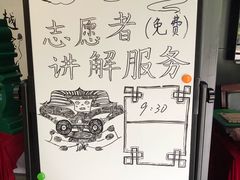 志愿者(免费)
讲解服务
9:30